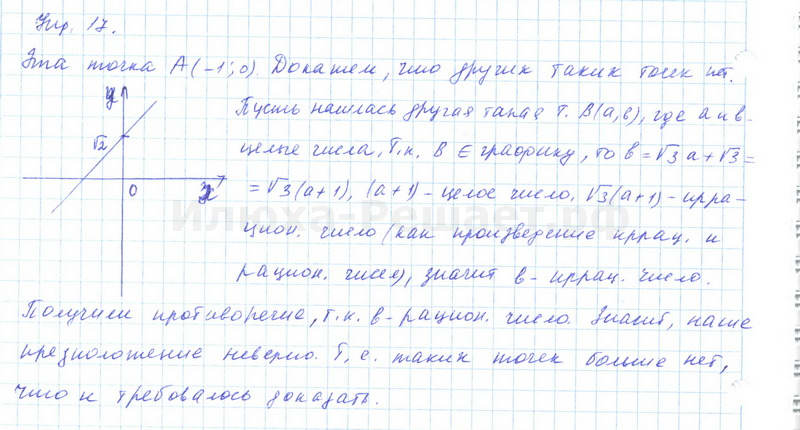 Упр. 17.
Эта точка A(-1; 0). Докажем, что других таких точек нет.
y
√2
0
x
Пусть нашлась другая такая т. B(a, b), где a и b-
целые числа. Т.к. B ∈ графику, то b = √3 a + √3 =
= √3 (a+1), (a+1) - целое число. √3 (a+1) - ирра-
цион. число (как произведение иррац. и
рацион. чисел), значит b - иррац. число.
Получили противоречие, т.к. b - рацион. число. Значит, наше
предположение неверно. Т.е. таких точек больше нет,
что и требовалось доказать.
Илюха-Решает.рф